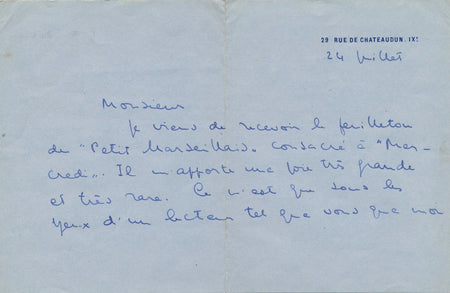 29 RUE DE CHATEAUDUN. IXE
24 juillet
Monsieur
Je viens de recevoir le feuilleton
du "Petit Marseillais" consacré à "Mer-
credi". Il m'apporte une joie très grande
et très rare. Ce n'est que sous les
yeux d'un lecteur tel que vous que mon